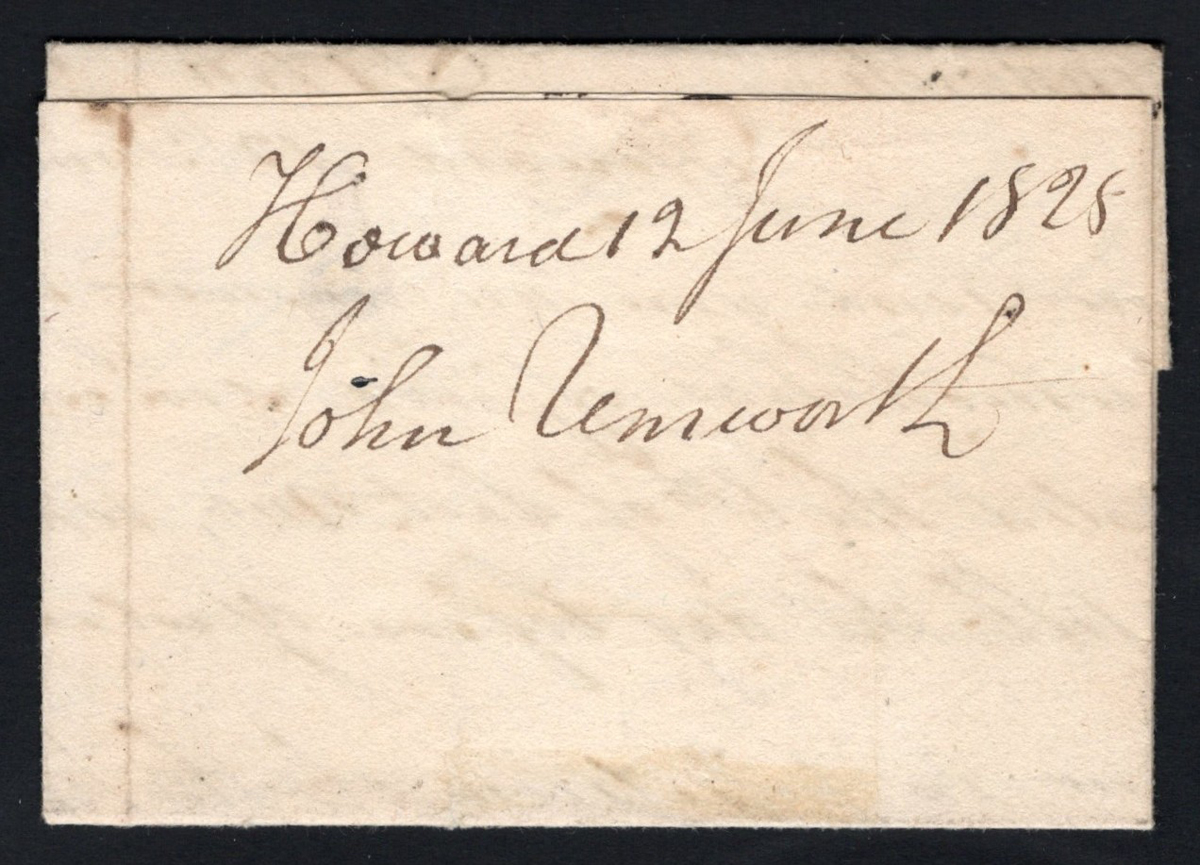 Howard 12 June 1828
John Unsworth